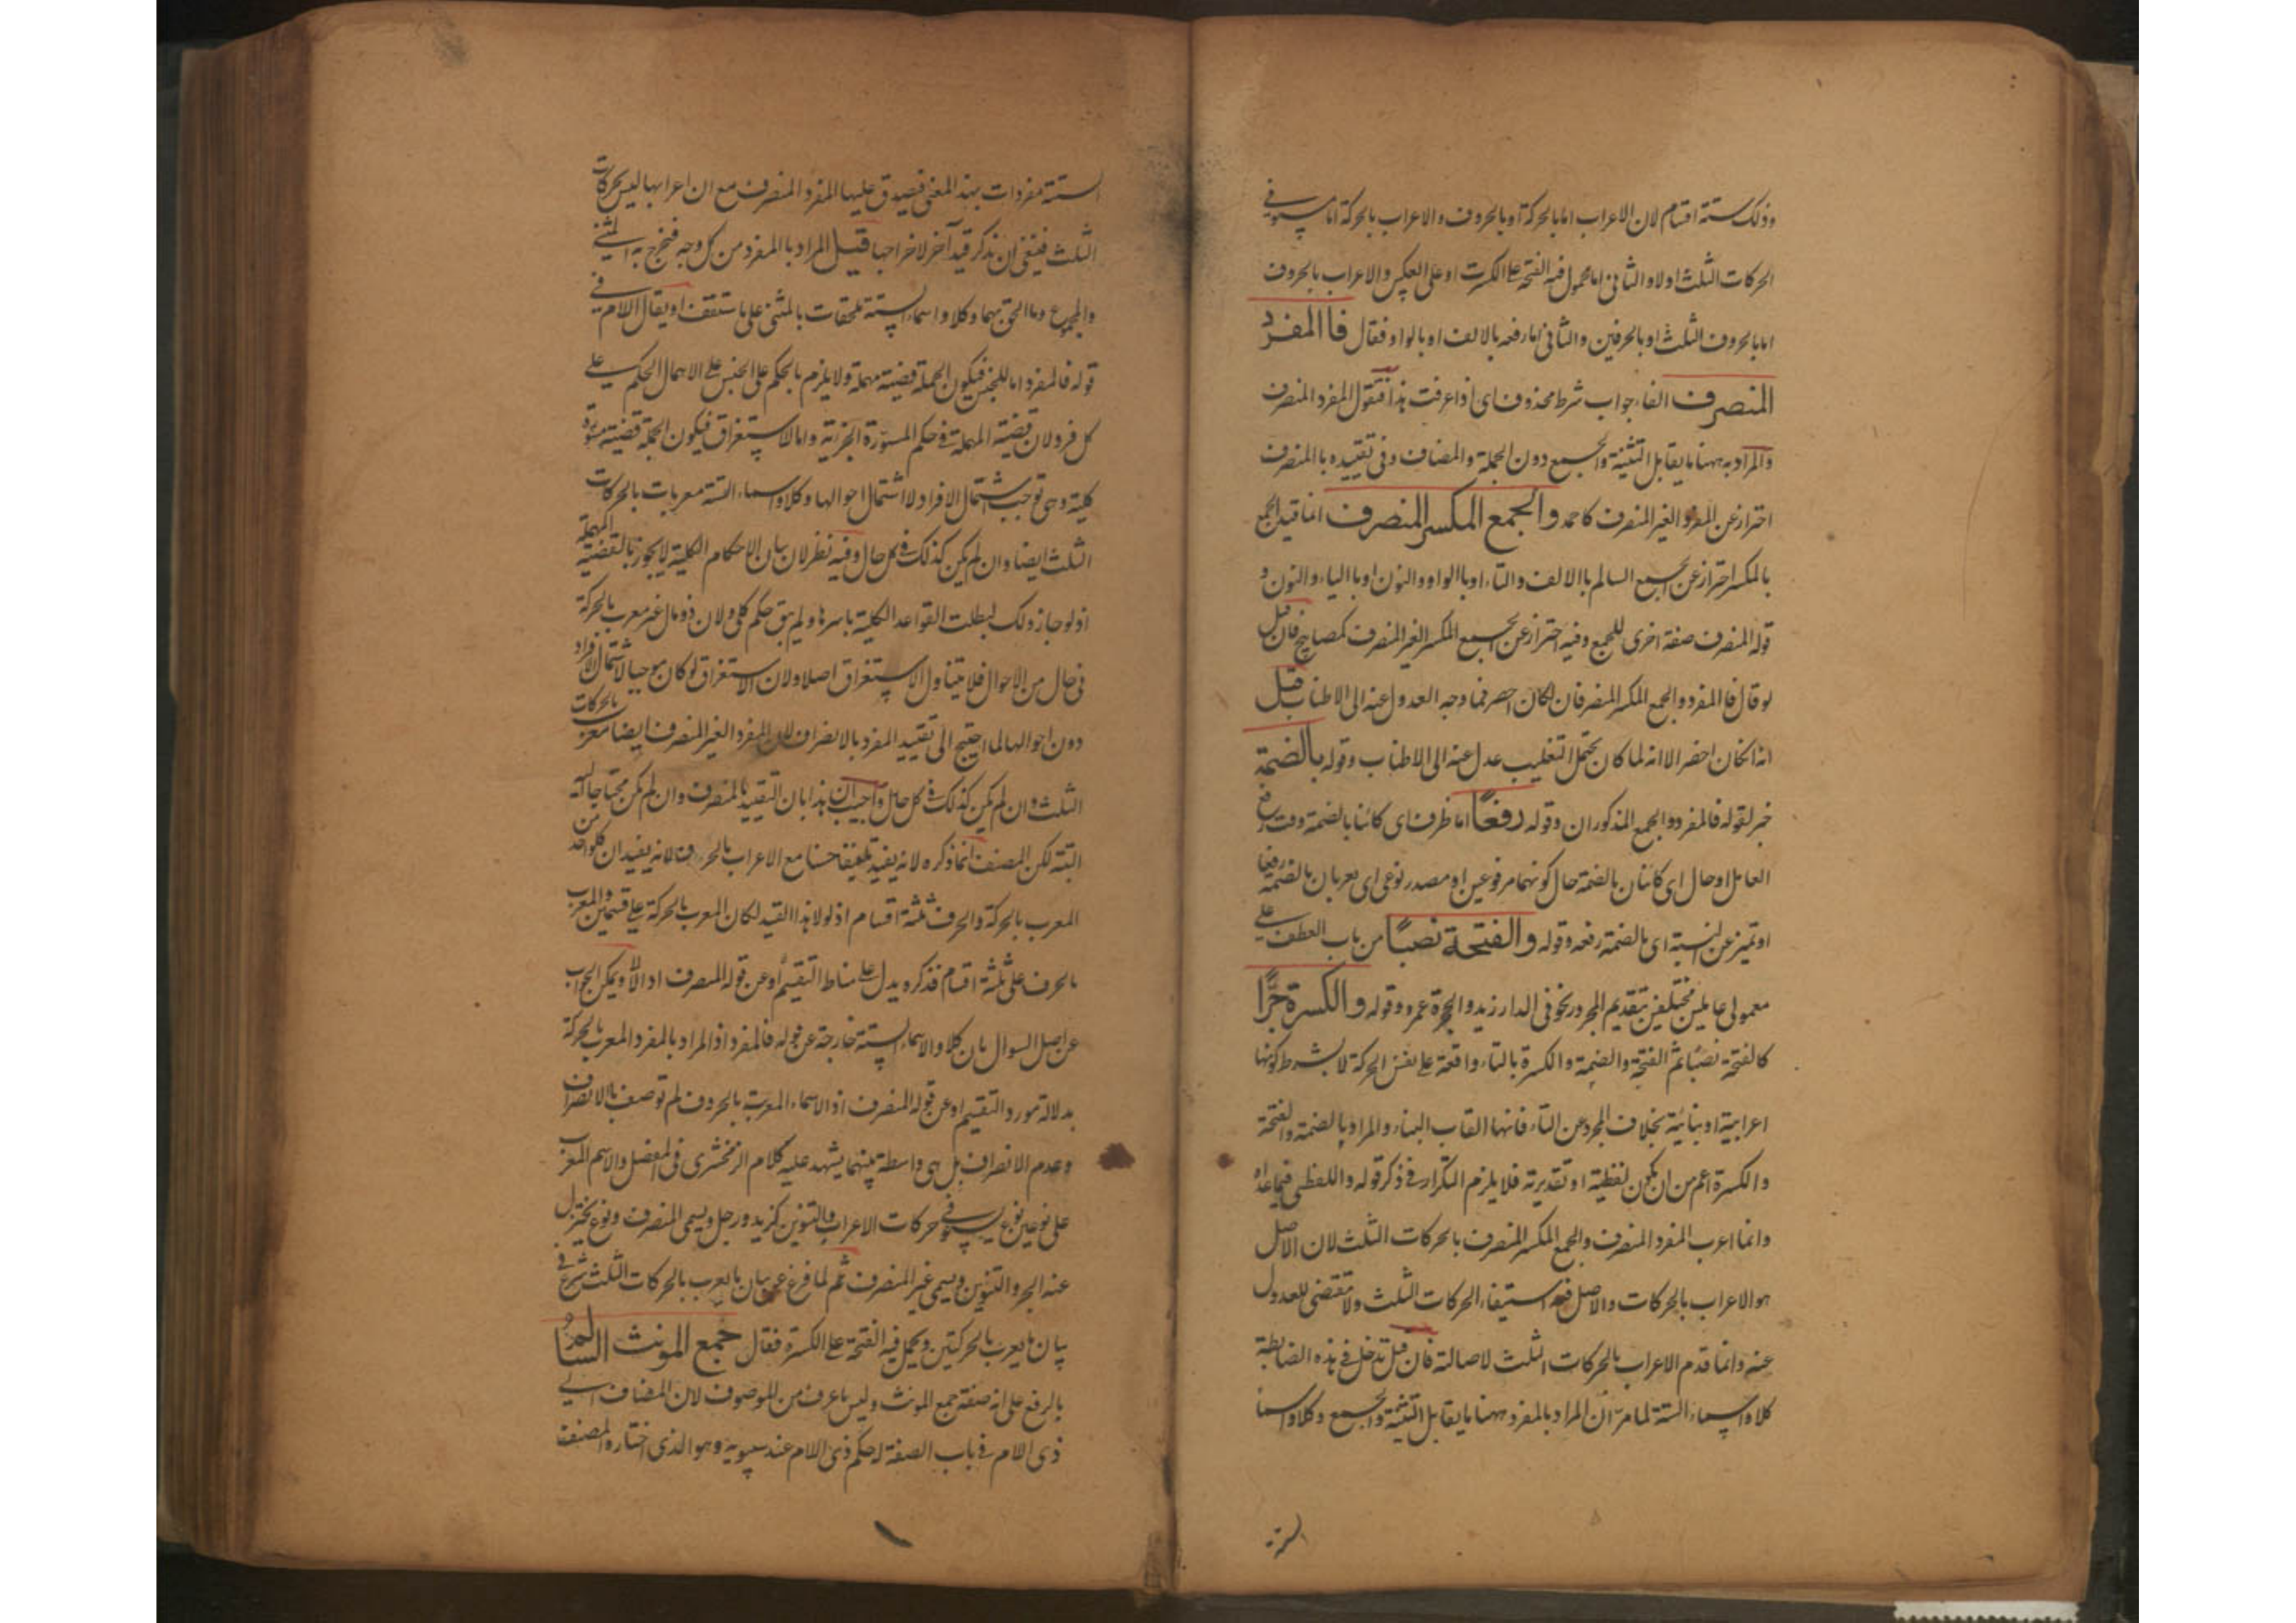 وذلك ستة اقسام لان الاعراب اما بالحركة او بالحروف والاعراب بالحركة اما يستوفى
الحركات الثلث اولا والثانى اما محمول فيه الفتحة على الكسرة او على العكس والاعراب بالحروف
اما بالحروف الثلث او بالحرفين والثانى اما رفعه بالالف او بالواو فقال فاالمفرد
المنصرف الفاء جواب شرط محذوف اى اذا عرفت هذا فنقول المفرد المنصرف
والمراد به ههنا ما يقابل التثنية والجمع دون الجملة والمضاف وفى تقييده باالمنصرف
احتراز عن المفرد الغير المنصرف كاحمد والجمع المكسر المنصرف انما قيد الجمع
بالمكسر احتراز عن الجمع السالم باالالف والتاء او باالواو والنون او باالياء والنون و
قوله المنصرف صفة اخرى للجمع وفيه احتراز عن الجمع المكسر الغير المنصرف كمصابيح فان قيل
لو قال فاالمفرد والجمع المكسر المنصرفان لكان احصر فما وجه العدول عنه الى الاطناب قيل
انه لكان احصر الا انه لما كان يحتمل التغليب عدل عنه الى الاطناب وقوله بالضمة
خبر لقوله فالمفرد والجمع المذكوران وقوله رفعًا اما ظرف اى كائنا بالضمة وقت رفع
العامل او حال اى كائنان بالضمة حال كونهما مرفوعين او مصدر نوعى اى يعربان بالضمة رفعا
او تميز عن النسبة اى بالضمة رفعه وقوله والفتحة نصبًا من باب العطف على
معمولى عاملين مختلفين بتقديم المجرور نحو فى الدار زيد والحجرة عمرو وقوله والكسرة جرًا
كالفتحة نصبًا ثم الفتحة والضمة والكسرة بالتاء واقعة على نفس الحركة لا بشرط كونها
اعرابية او بنائية بخلاف المجرد عن التاء فانها القاب البناء والمراد بالضمة والفتحة
والكسرة اعم من ان يكون لفظية او تقديرية فلا يلزم التكرار فى ذكر قوله واللفظى فيما عداه
وانما اعرب المفرد المنصرف والجمع المكسر المنصرف بالحركات الثلث لان الاصل
هو الاعراب بالحركات والاصل فيه استيفاء الحركات الثلث ولا مقتضى للعدول
عنه وانما قدم الاعراب بالحركات الثلث لاصالته فان قيل تدخل فى هذه الضابطة
كلا واسماء الستة لما مر ان المراد بالمفرد ههنا ما يقابل التثنية والجمع وكلا واسماء
الستة
الستة مفردات بهذا المعنى فيصدق عليها المفرد المنصرف مع ان اعرابها ليس بحركات
الثلث فينبغى ان يذكر قيد آخر لاخراجها قيل المراد باالمفرد من كل وجه فيخرج به المثنى
والمجموع وما الحق بهما وكلا واسماء الستة ملحقات بالمثنى على ما ستقف او يقال اللام فى
قوله فالمفرد اما للجنس فيكون الجملة قضية مهملة ولا يلزم بالحكم على الجنس على الاهمال الحكم على
كل فرد لان قضية المهملة فى حكم المسورة الجزئية واما للاستغراق فيكون الجملة قضية مسورة
كلية وهى توجب اشتمال الافراد لا اشتمال احوالها وكلا واسماء الستة معربات بالحركات
الثلث ايضا وان لم يكن كذلك فى كل حال وفيه نظر لان بيان الاحكام الكلية لا يجوز بالقضية المهملة
اذ لو جاز ذلك لبطلت القواعد الكلية باسرها ولم يبق حكم كلى ولان ذو مال غير معرب بالحركة
فى حال من الاحوال فلا يتناول الاستغراق اصلا ولان الاستغراق لو كان موجبا لاشتمال الافراد
دون احوالها لما احتيج الى تقييد المفرد بالانصراف لان المفرد الغير المنصرف ايضا معرب بالحركات
الثلث وان لم يكن كذلك فى كل حال واجيب ان هذا بان التقييد بالمنصرف وان لم يكن محتاجا اليه
البتة لكن المصنف انما ذكره لانه يفيد تلفيقا حسنا مع الاعراب بالحروف لانه يفيد ان كلواحد من
المعرب بالحركة والحرف ثلثة اقسام اذ لولا هذا القيد لكان المعرب بالحركة على قسمين والمعرب
بالحرف على ثلثة اقسام فذكره يدل على مناط التقسيم او عن قوله المنصرف اولا ويمكن الجواب
عن اصل السوال بان كلا والاسماء الستة خارجة عن قوله فالمفرد اذ المراد بالمفرد المعرب بالحركة
بدلالة مورد التقسيم او عن قوله المنصرف اذ الاسماء المعرب بالحروف لم توصف باالانصراف
وعدم الانصراف بل هى واسطة بينهما يشهد عليه كلام الزمخشرى فى المفصل والاسم المعرب
على نوعين نوع يستوفى حركات الاعراب والتنوين كزيد ورجل ويسمى المنصرف ونوع يختزل
عنه الجر والتنوين ويسمى غير المنصرف ثم لما فرغ عن بيان ما يعرب بالحركات الثلث شرع فى
بيان ما يعرب بالحركتين ويحمل فيه الفتحة على الكسرة فقال جمع المونث السالم
بالرفع على انه صفة جمع المونث وليس باعرف من الموصوف لان المضاف الى
ذى اللام فى باب الصفة له حكم ذى اللام عند سيبويه وهو الذى اختاره المصنف